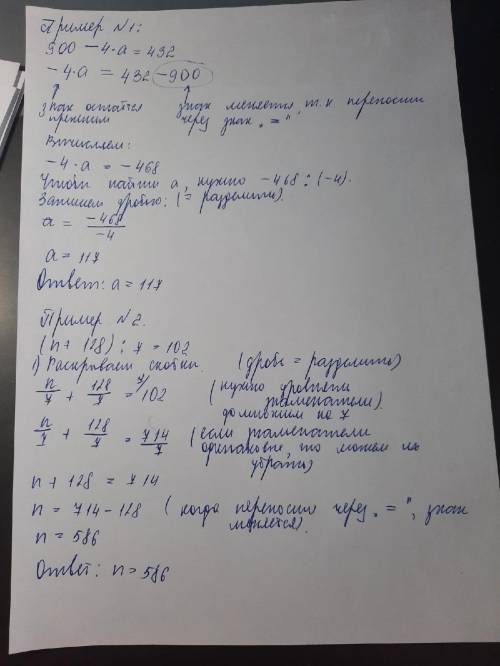 Пример №1:
900 - 4·a = 432
-4·a = 432 - 900
знак остаётся прежним
знак меняется, т.к. переносим через знак „="
Вычисляем:
-4·a = -468
Чтобы найти a, нужно -468 : (-4).
Запишем дробью: (= разделить).
a = -468/-4
a = 117
Ответ: a = 117
Пример №2.
(n + 128) : 7 = 102
1) Раскрываем скобки. (дробь = разделить)
n/7 + 128/7 = 102 (нужно уровнять знаменатели). домножим на 7
n/7 + 128/7 = 714/7 (если знаменатели одинаковые, то можем их убрать)
n + 128 = 714
n = 714 - 128 (когда переносим через „=", знак меняется).
n = 586
Ответ: n = 586